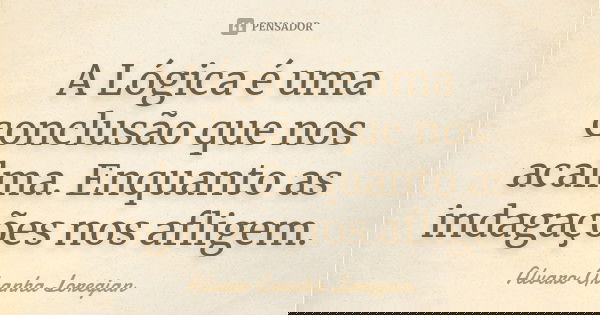 PENSADOR
A Lógica é uma
conclusão que nos
acalma. Enquanto as
indagações nos afligem.
Alvaro Granha Loregian